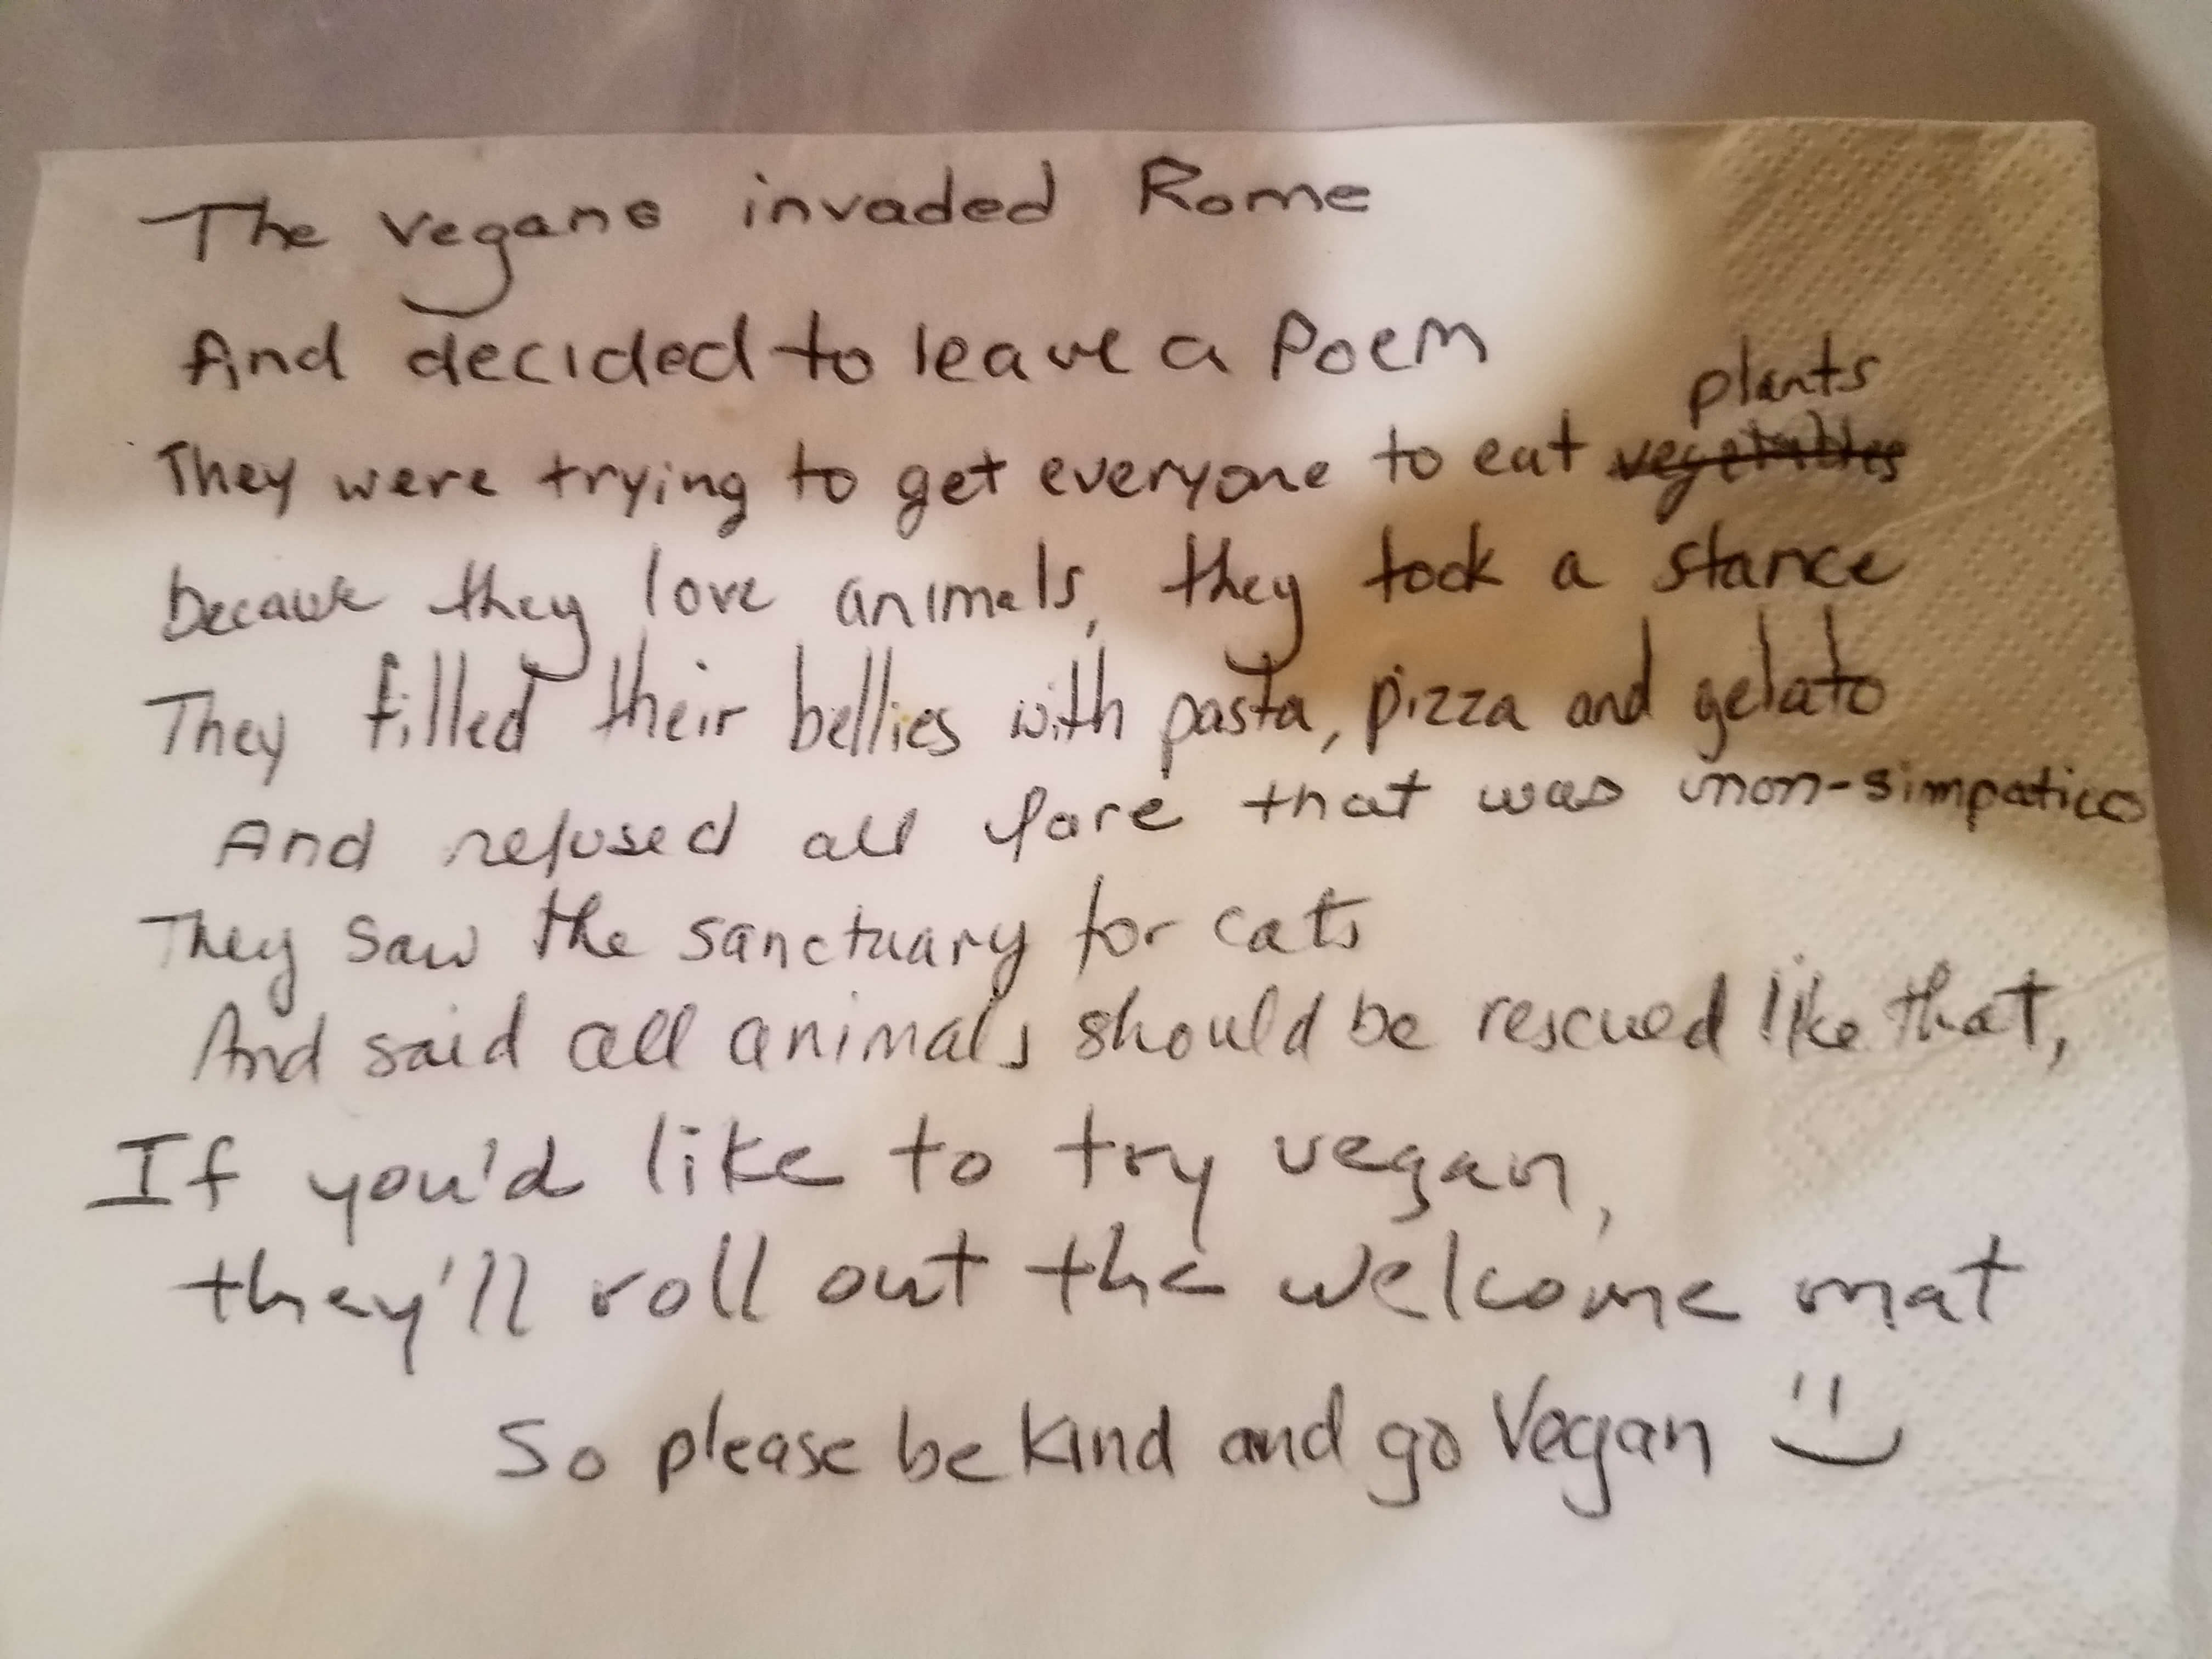 The vegans invaded Rome
And decided to leave a Poem
plants
They were trying to get everyone to eat vegetables
because they love animals, they took a stance
They filled their bellies with pasta, pizza and gelato
And refused all fare that was non-simpatico
They saw the sanctuary for cats
And said all animals should be rescued like that,
If you'd like to try vegan,
they'll roll out the welcome mat
So please be kind and go Vegan